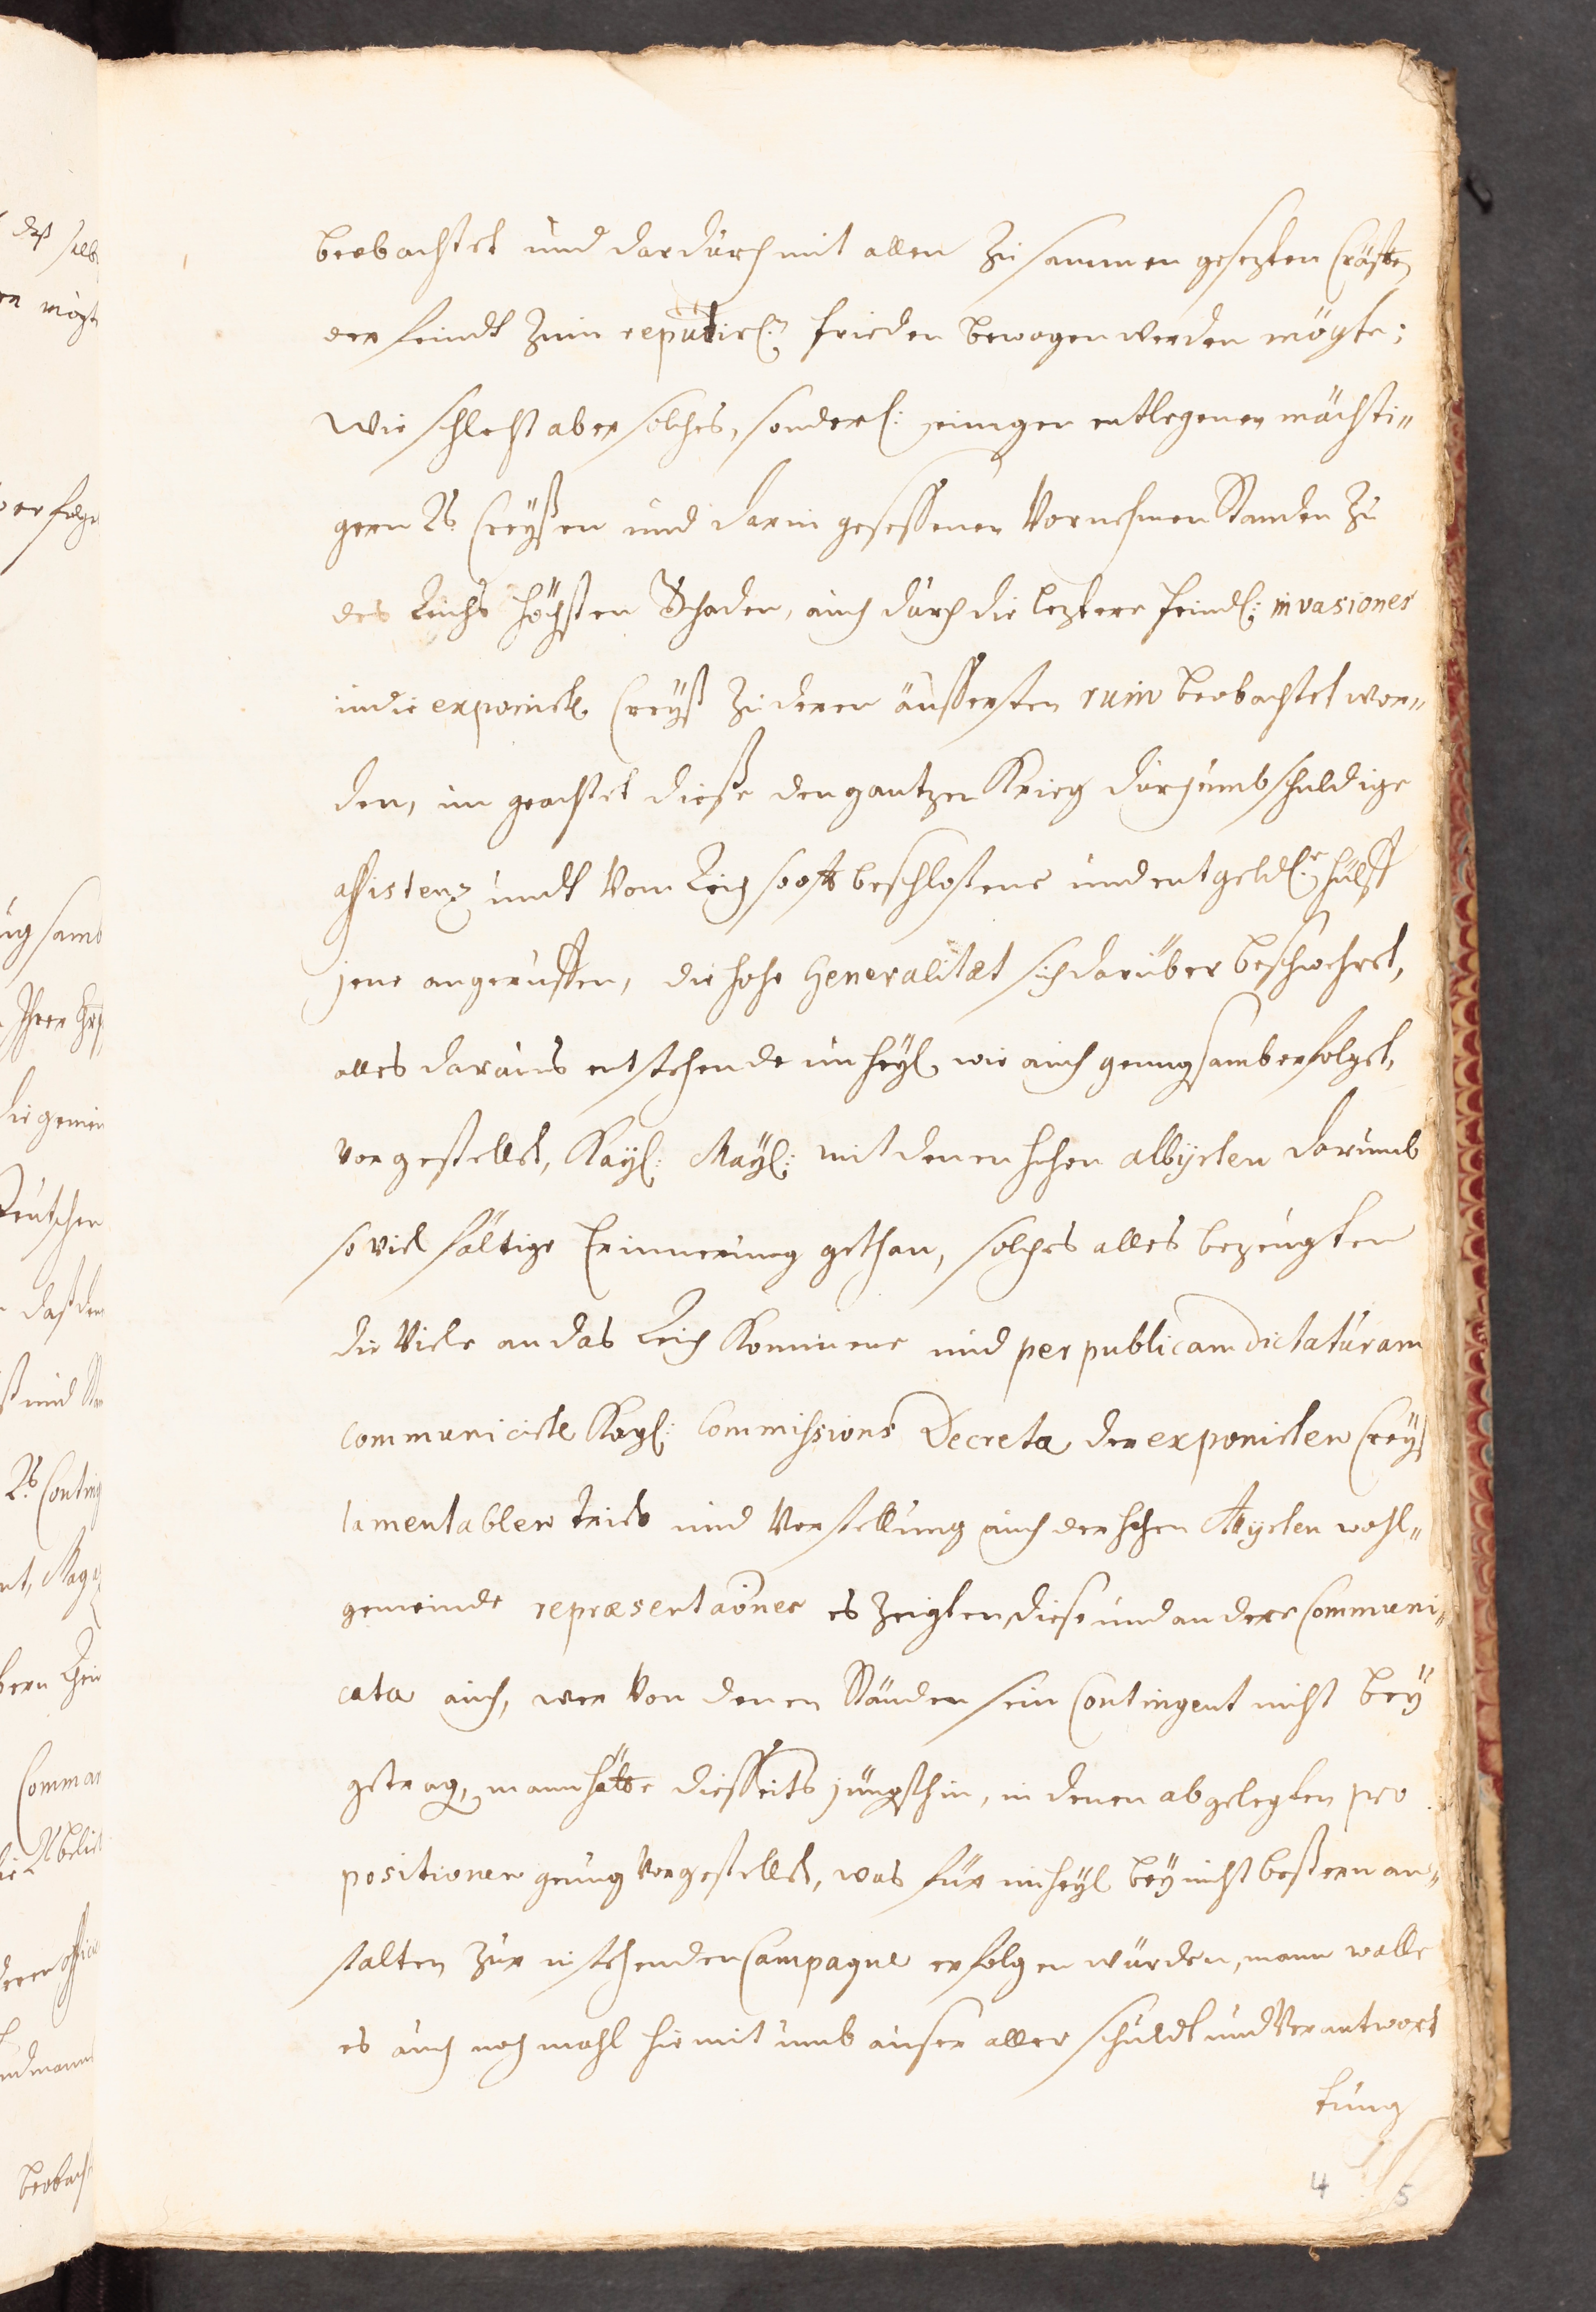 beobachtet und dardurch mit allen zusammen gesezten Cräfften
der feindt zum reputirl: frieden bewogen werden mögte;
Wie schlecht aber solches, sonderl: einiger entlegener mächti-
gern Rs. Creyßen und darin gesessenen Vornehmen Standen zu
des Reichs höchsten Schaden, auch durch die leztere feindl: invasiones
in die exponirte Creyß zu deren äussersten ruin beobachtet wor-
den, un geachtet dieße den gantzen Krieg durch umb schuldige
assistenz undt Vom Reich so offt beschloßene und entgeldl: hülff
jene angeruffen, die hohe Generalitæt sich darüber beschwehret,
alles daraus entstehende unheyl, wie auch genugsamb erfolget,
vorgestellet, Kayl: Mayl: mit denen hohen allyrten darumb
so viel fältige Erinnerung gethan, solches alles bezeugten
die Viele an das Reich Kommene und per publicam dictaturam
communicirte Kayl: Commissions Decreta der exponirten Creyß
lamentablen und Vorstellung auch der hohen Allyrten wohl-
gemeinde repræsentationes es zeigten diese und andere Communi-
cata auch, wer Von denen Ständen sein Contingent nicht bey
getrag, mann hätte diesseits jüngsthin, in denen abgelegten pro
positionen genug Vorgestellet, was für unheyl bey nicht beßern an-
stalten zur instehenden Campagne erfolgen würden, mann wolle
es auch noch mahl hiemit umb auser aller schuldt und Verantwort
tung
4 5